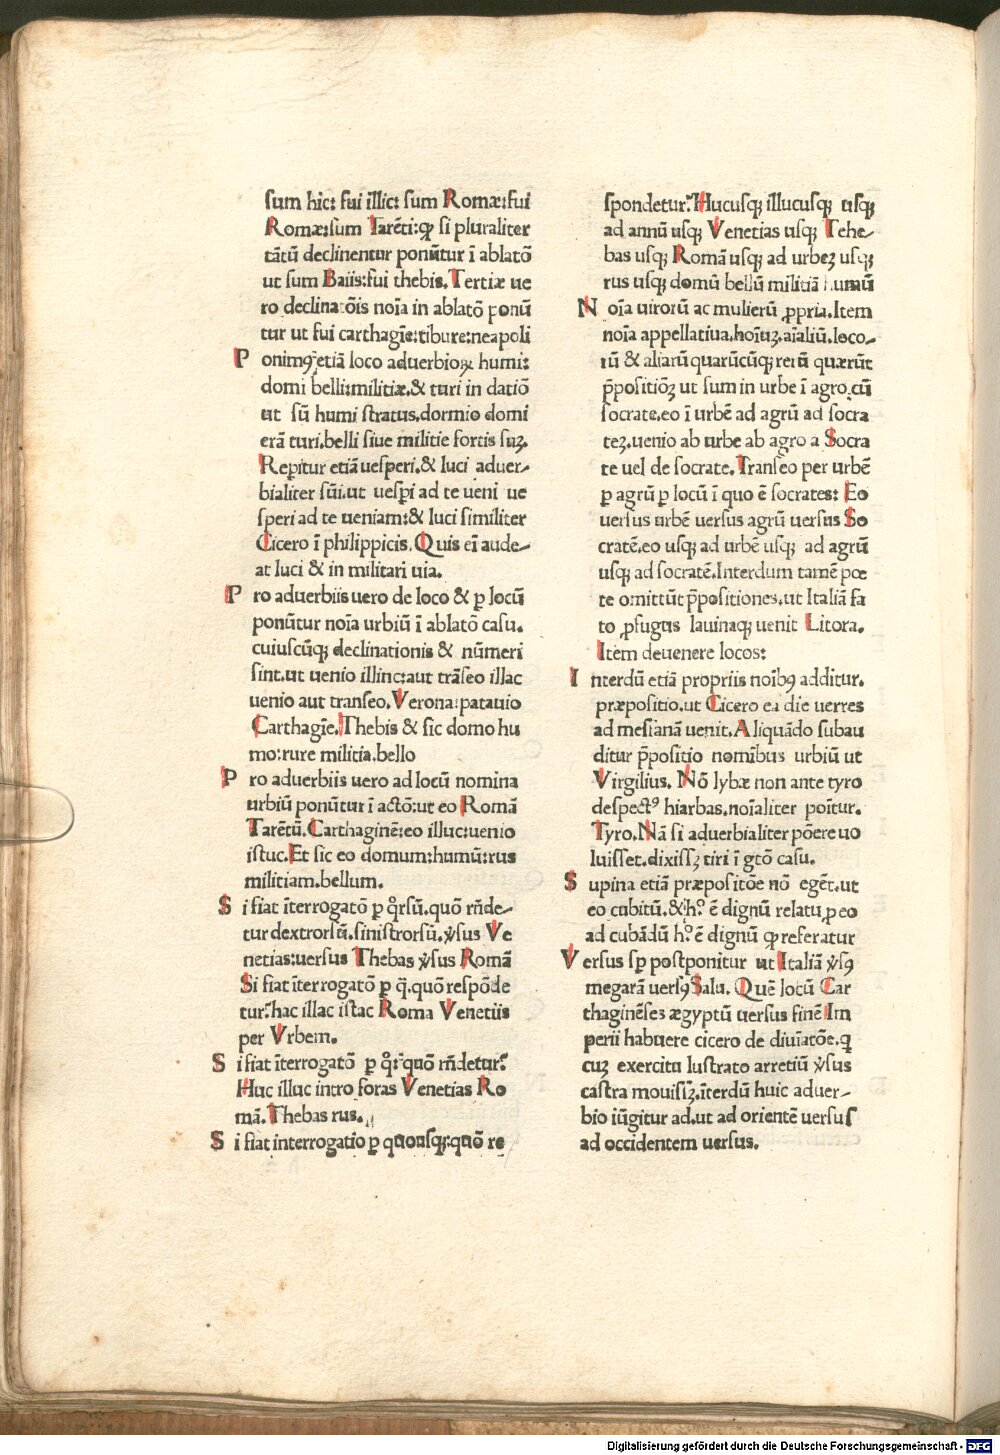 sum hic: fui illic: sum Romæ: fui
Romæ: sum Tarēti: ꝙ si pluraliter
tātū declinentur ponūtur ī ablatō
ut sum Baiis: fui thebis. Tertiæ ue
ro declinatōis noīa in ablatō ponū
tur ut fui carthagīe: tibure: neapoli
P onimꝰ etiā loco aduerbioꝝ humi:
domi belli: militiæ. & ruri in datiō
ut sū humi stratus. dormio domi
erā ruri. belli siue militie fortis suꝫ.
Repitur etiā uesperi. & luci aduer-
bialiter sūi. ut uesꝑi ad te ueni ue
speri ad te ueniam: & luci similiter
Cicero ī philippicis. Quis eī aude-
at luci & in militari uia.
P ro aduerbiis uero de loco & ꝑ locū
ponūtur noīa urbiū ī ablatō casu.
cuiuscūqꝫ declinationis & nūmeri
sint. ut uenio illinc: aut trāseo illac
uenio aut transeo. Verona: patauio
Carthagīe. Thebis & sic domo hu
mo: rure militia. bello
P ro aduerbiis uero ad locū nomina
urbiū ponūtur ī actō: ut eo Romā
Tarētū. Carthaginē: eo illuc: uenio
istuc. Et sic eo domum: humū: rus
militiam. bellum.
S i fiat īterrogatō ꝑ q̊rsū. quō rn̄de-
tur dextrorsū. sinistrorsū. ꝟsus Ve
netias: uersus Thebas ꝟsus Romā
Si fiat īterrogatō ꝑ q̄. quō respōde
tur? hac illac istac Roma Venetiis
per Vrbem.
S i fiat īterrogatō ꝑ q̊: quō rn̄detur?
Huc illuc intro foras Venetias Ro
mā. Thebas rus.
S i fiat interrogatio ꝑ quousqꝫ: quō re
spondetur? Hucusqꝫ illucusqꝫ usqꝫ
ad annū usqꝫ Venetias usqꝫ Tehe-
bas usqꝫ Romā usqꝫ ad urbeꝫ usqꝫ
rus usqꝫ domū bellū militiā humū
N oīa uirorū ac mulierū ꝓpria. Item
noīa appellatiua. hoīuꝫ. aīaliū. loco-
rū & aliarū quarūcūqꝫ rerū quærūt
p̄positiōꝫ ut sum in urbe ī agro. cū
socrate. eo ī urbē ad agrū ad socra
teꝫ. uenio ab urbe ab agro a Socra
te uel de socrate. Transeo per urbē
ꝑ agrū ꝑ locū ī quo ē socrates: Eo
uersus urbē uersus agrū uersus So
cratē. eo usqꝫ ad urbē usqꝫ ad agrū
usqꝫ ad socratē. Interdum tamē poe
te omittūt p̄positiones. ut Italiā fa
to ꝓfugus lauinaqꝫ uenit Litora.
Item deuenere locos:
I nterdū etiā propriis noībꝰ additur.
præpositio. ut Cicero ea die uerres
ad mesianā uenit. Aliquādo subau
ditur p̄positio nomībus urbiū ut
Virgilius. Nō lybæ non ante tyro
despectꝰ hiarbas. noīaliter poītur.
Tyro. Nā si aduerbialiter pōere uo
luisset. dixissꝫ tiri ī gtō casu.
S upina etiā præpositōe nō egēt. ut
eo cubitū. & h̊ ē dignū relatu. ꝓ eo
ad cubādū h̊ ē dignū ꝙ referatur
V ersus sꝑ postponitur ut Italiā ꝟsꝰ
megarā uersꝰ Salu. Quē locū Car
thaginēses ægyptū uersus finē Im
perii habuere cicero de diuiatōe. q̄
cuꝫ exercitu lustrato arretiū ꝟsus
castra mouissꝫ. īterdū huic aduer-
bio iūgitur ad. ut ad orientē uersus
ad occidentem uersus.
Digitalisierung gefördert durch die Deutsche Forschungsgemeinschaft - DFG